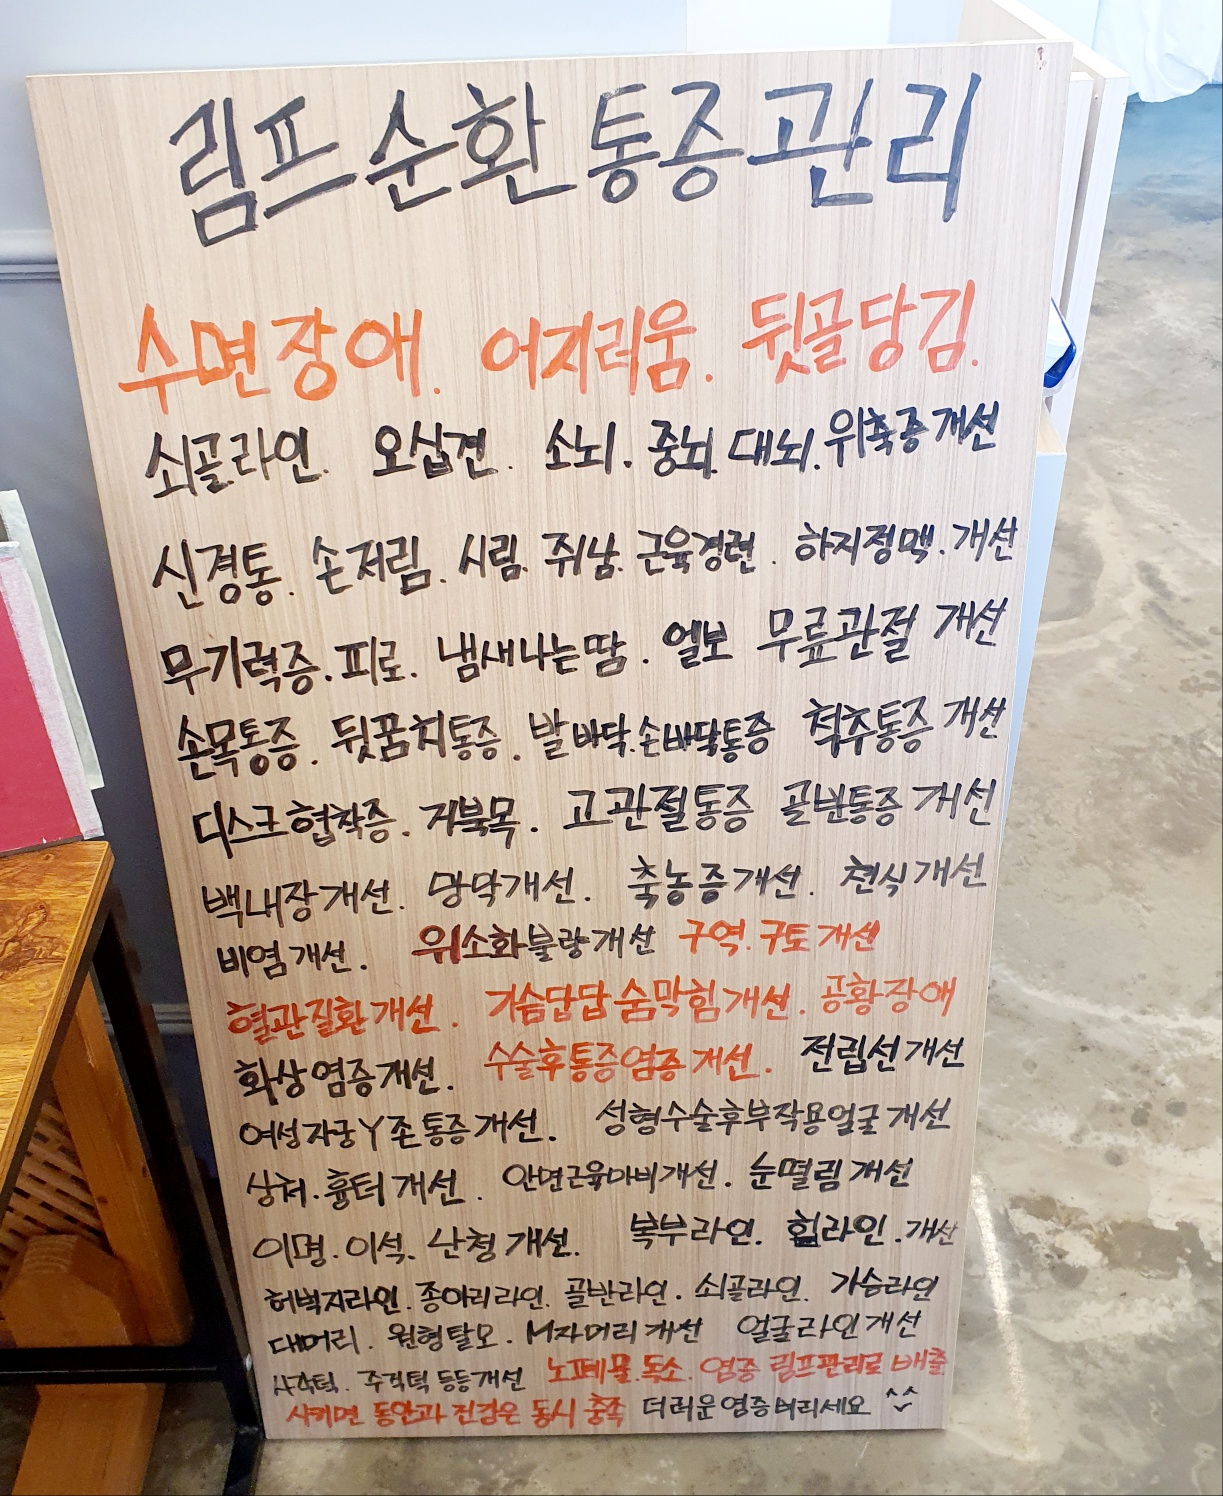 림프순환 통증관리
수면장애. 어지러움. 뒷골당김.
쇠골라인. 오십견. 소뇌. 중뇌. 대뇌. 위축증개선
신경통. 손저림. 시림. 쥐남. 근육경련. 하지정맥. 개선
무기력증. 피로. 냄새나는땀. 엘보 무릎관절 개선
손목통증. 뒷꿈치통증. 발바닥.손바닥통증 척추통증 개선
디스크협착증. 거북목. 고관절통증 골반통증 개선
백내장개선. 망막개선. 축농증개선. 천식개선
비염개선. 위소화불량개선 구역.구토개선
혈관질환개선. 가슴답답숨막힘개선. 공황장애
화상염증개선. 수술후통증염증개선. 전립선개선
여성자궁Y존통증개선. 성형수술후부작용얼굴개선
상처.흉터개선. 안면근육마비개선. 눈떨림개선
이명.이석.난청개선. 복부라인. 힙라인.개선
허벅지라인.종아리라인.골반라인.쇠골라인. 가슴라인
대머리. 원형탈모. M자머리개선 얼굴라인개선
사각턱. 주걱턱등등개선 노폐물.독소. 염증 림프관리로 배출
시키면 동안과 건강은 동시 충족 더러운염증버리세요 ^^